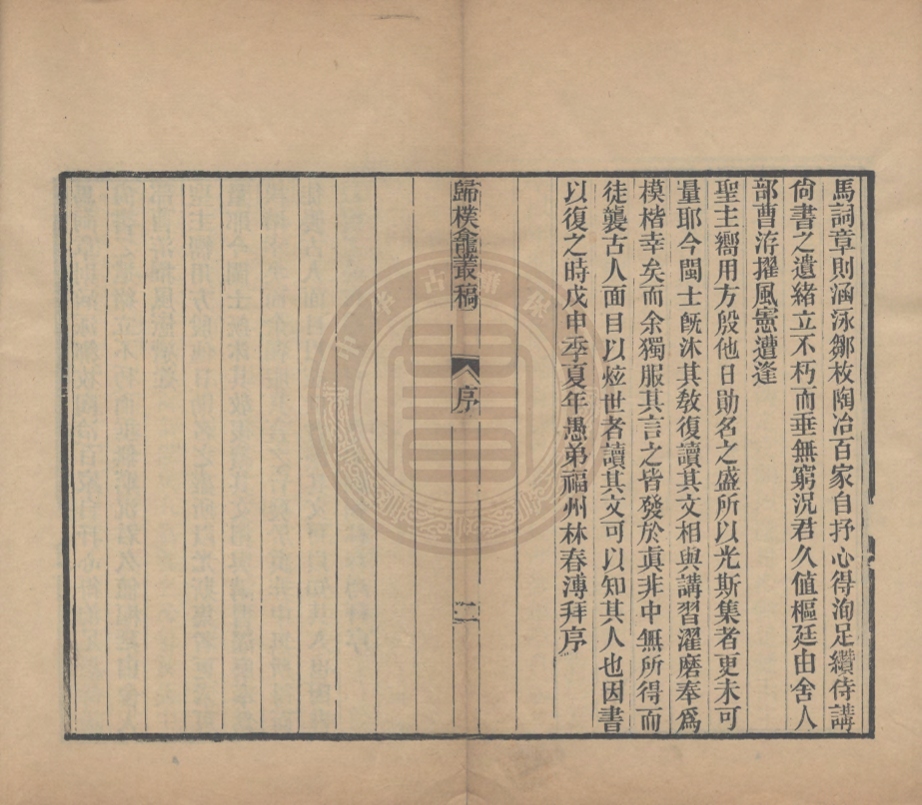 馬詞章則涵泳鄒枚陶冶百家自抒心得洵足纘侍講
尙書之遺緒立不朽而垂無窮況君久值樞廷由舍人
部曹洊擢風憲遭逢
聖主嚮用方殷他日勛名之盛所以光斯集者更未可
量耶今閩士旣沐其敎復讀其文相與講習濯磨奉爲
模楷幸矣而余獨服其言之皆發於眞非中無所得而
徒襲古人面目以炫世者讀其文可以知其人也因書
以復之時戊申季夏年愚弟福州林春溥拜序
歸樸龕叢稿
序
二